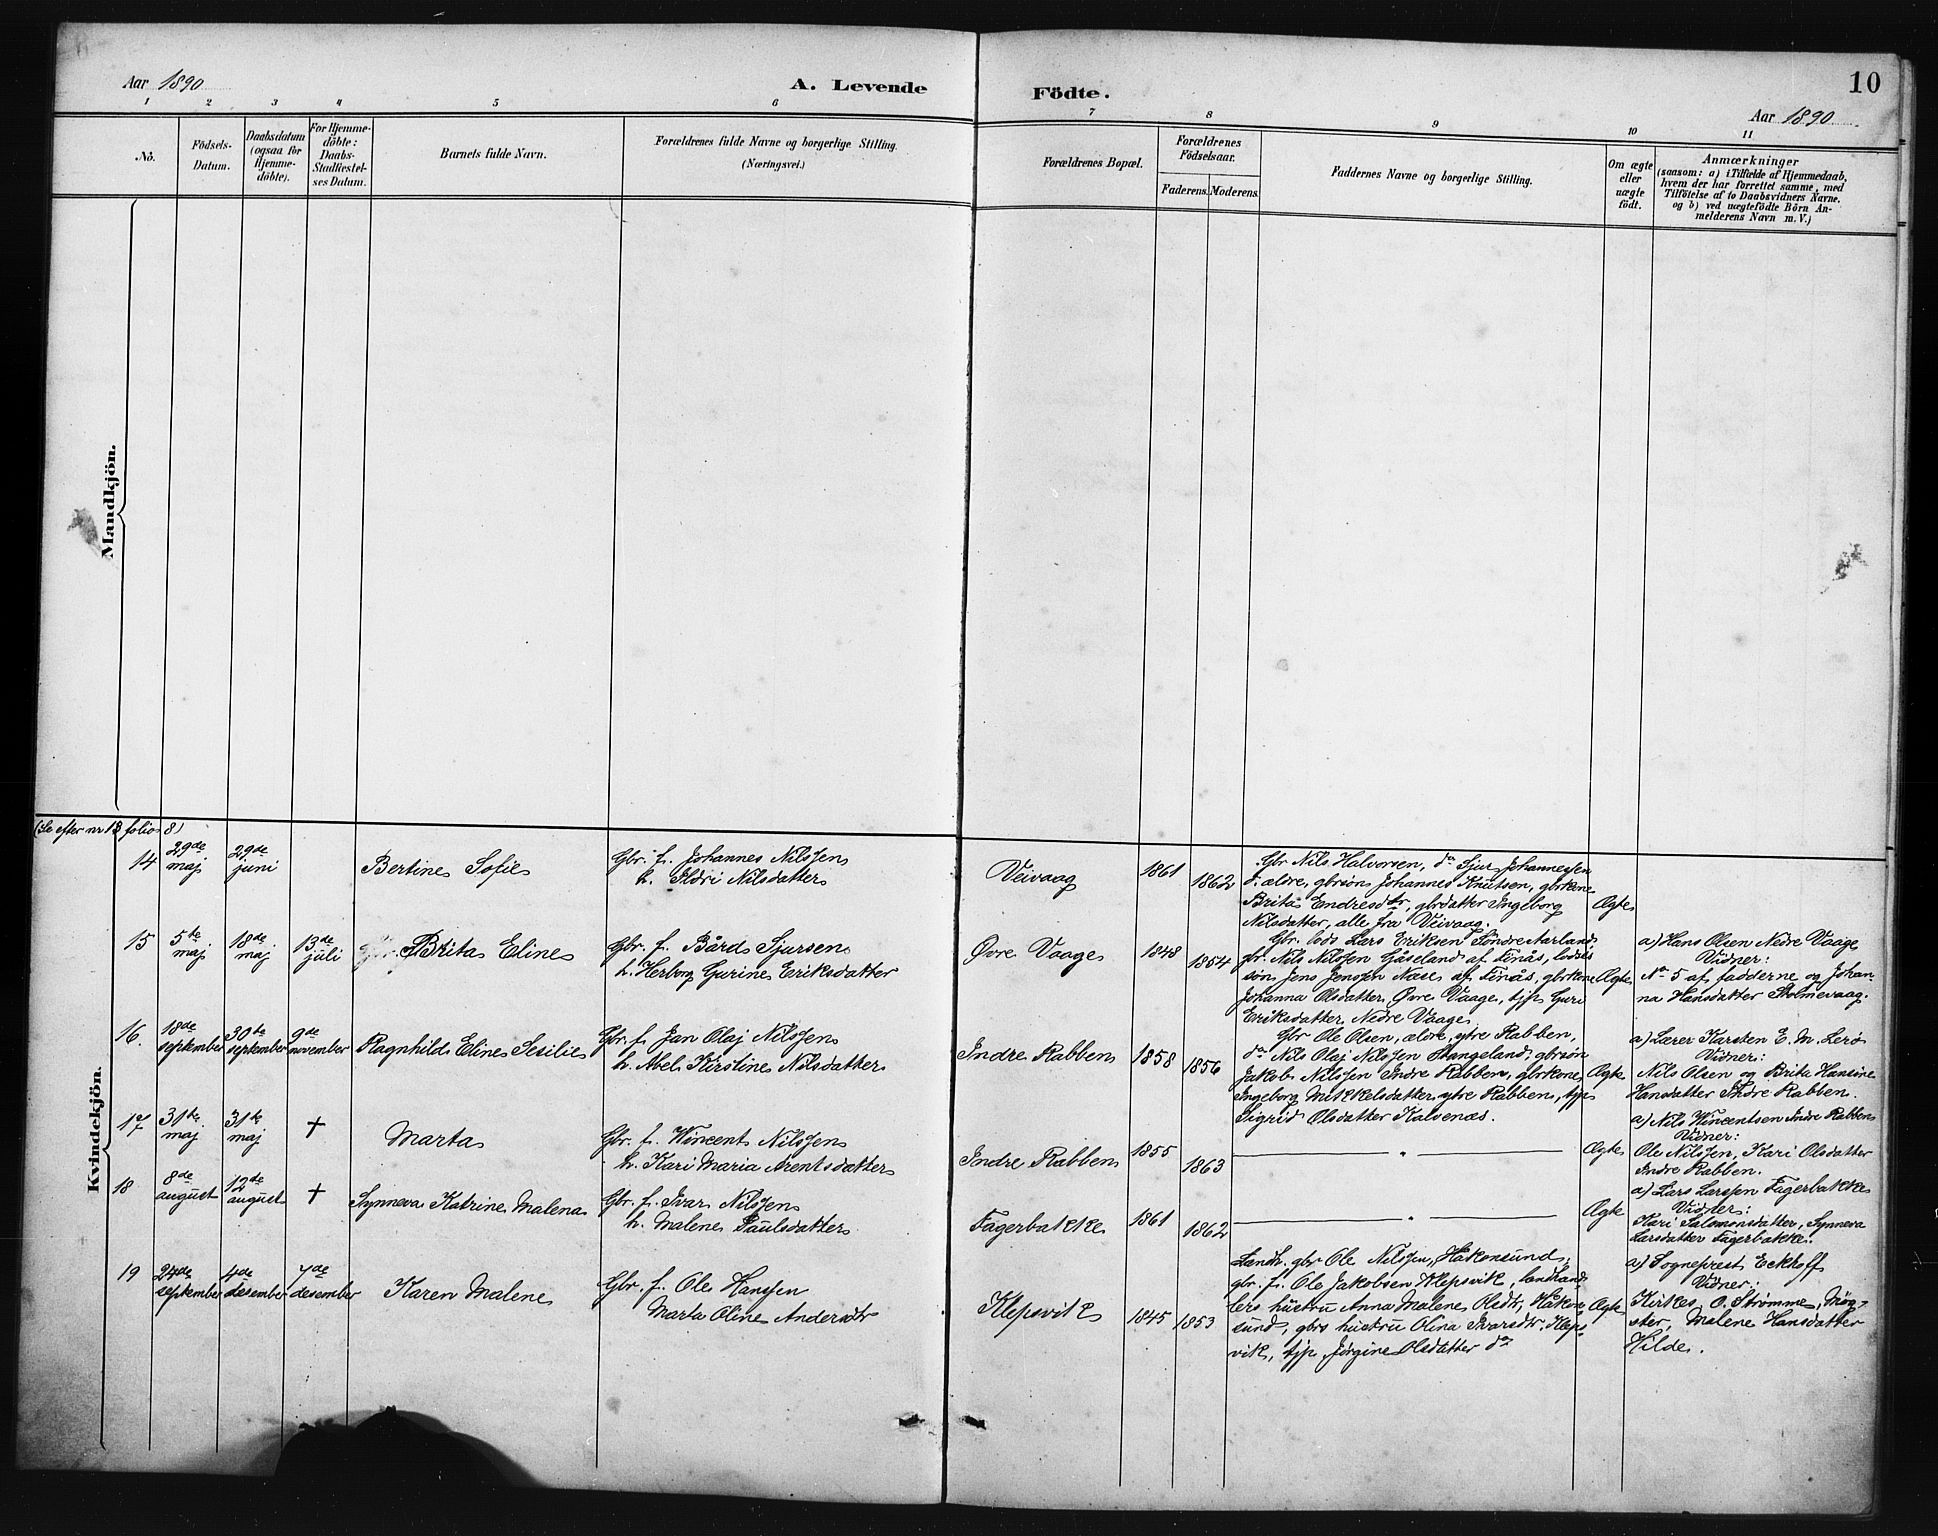 10
Aar 1890
A. Levende
Födte.
Aar 1890
1 2 3 4 5 6 7 8 9 10 11
No.
Födsels-
Datum.
Daabsdatum
(ogsaa for
Hjemme-
döbte).
For Hjemme-
döbte:
Daabs-
Stadfæstel-
ses Datum.
Barnets fulde Navn.
Forældrenes fulde Navne og borgerlige Stilling.
(Næringsvei.)
Forældrenes Bopæl.
Forældrenes
Födselsaar.
Faderens.
Moderens.
Faddernes Navne og borgerlige Stilling.
Om ægte
eller
uægte
födt.
Anmærkninger
(saasom: a) i Tilfælde af Hjemmedaab,
hvem der har forrettet samme, med
Tilföielse af to Daabsvidners Navne.
og b) ved uægtefödte Börn An-
melderens Navn m. V.)
Mandkjön.
Kvindekjön.
(Se efter nr 13 folio 8)
14
29de
maj
29de
juni
Bertine Sofie
Gbr. f. Johannes Nilssen
h. Ildri Nilsdatter
Veivaag
1861
1862
Gbr Nils Halvorsen, do Sjur Johannessen
d. ældre, gbrsøn Johannes Knutsen, gbrkone
Brita Endresdtr, gbrdatter Ingeborg
Nilsdatter, alle fra Veivaag.
Ægte
15
5te
maj
18de
maj
13de
juli
Brita Eline
Gbr. f. Bård Sjursen
h. Herborg Gurine Eriksdatter
Øvre Vaage
1848
1854
Gbr. lods Lars Eriksen Søndre Aarland
gbr. Nils Nilssen Gåseland af Finås, lodss
søn Jens Jenssen Næse af Finås, gbrkone
Johanna Olsdatter, Øvre Vaage, tjp Guri
Eriksdatter Nedre Vaage
Ægte
a) Hans Olsen Nedre Vaage
Vidner:
No 5 af fadderne og Johan-
na Hansdatter Stolmevaag.
16.
18de
september
30te
september
9de
november
Ragnhild Eline Sesilie
Gbr. f. Jan Olaj Nilssen
h. Abel Kirstine Nilsdatter
Indre Rabben
1858
1856
Gbr Ole Olsen, ældre, ytre Rabben,
do Nils Olaj Nilssen Stangeland, gbrsøn
Jakob Nilssen Indre Rabben, gbrkone
Ingeborg Mikkelsdatter, ytre Rabben, tjp
Sigrid Olsdatter Kalvenæs.
Ægte
a) Lærer Karsten E. M. Lerø
Vidner:
Nils Olsen og Brita Hansine
Hansdatter Indre Rabben.
17
31te
maj
31te
maj
+
Marta
Gbr. f. Wincent Nilssen
h. Kari Maria Arentsdatter
Indre Rabben
1855
1863
— " —
Ægte
a) Nils Wincentsen Indre Rabben
Vidner:
Ole Nilssen, Kari Olsdatter
Indre Rabben.
18
8de
august
12te
august
+
Synneva Katrine Malena
Gbr. f. Ivar Nilssen
h. Malene Paulsdatter
Fagerbakke
1861
1862
— " —
Ægte
a) Lars Larssen Fagerbakke
Vidner:
Kari Salomonsdatter, Synneva
Larsdatter Fagerbakke.
19
24de
september
4de
desember
7de
desember
Karen Malene
Gbr. f. Ole Hanssen
Marta Oline Andersdtr
Klepsvik
1845
1853
Landh. gbr Ole Nilssen, Håkonsund,
gbr. f. Ole Jakobsen Klepsvik, landhand-
lers hustru Anna Malene Olsdtr, Håkon-
sund, gbrs hustru Olina Ivarsdtr, Kleps-
vik, tjp Jørgine Olsdatter do
Ægte
a) Sogneprest Eckhoff
Vidner:
Kirkes. O. Strømme, Møg-
ster, Malene Hansdatter
Hilde.